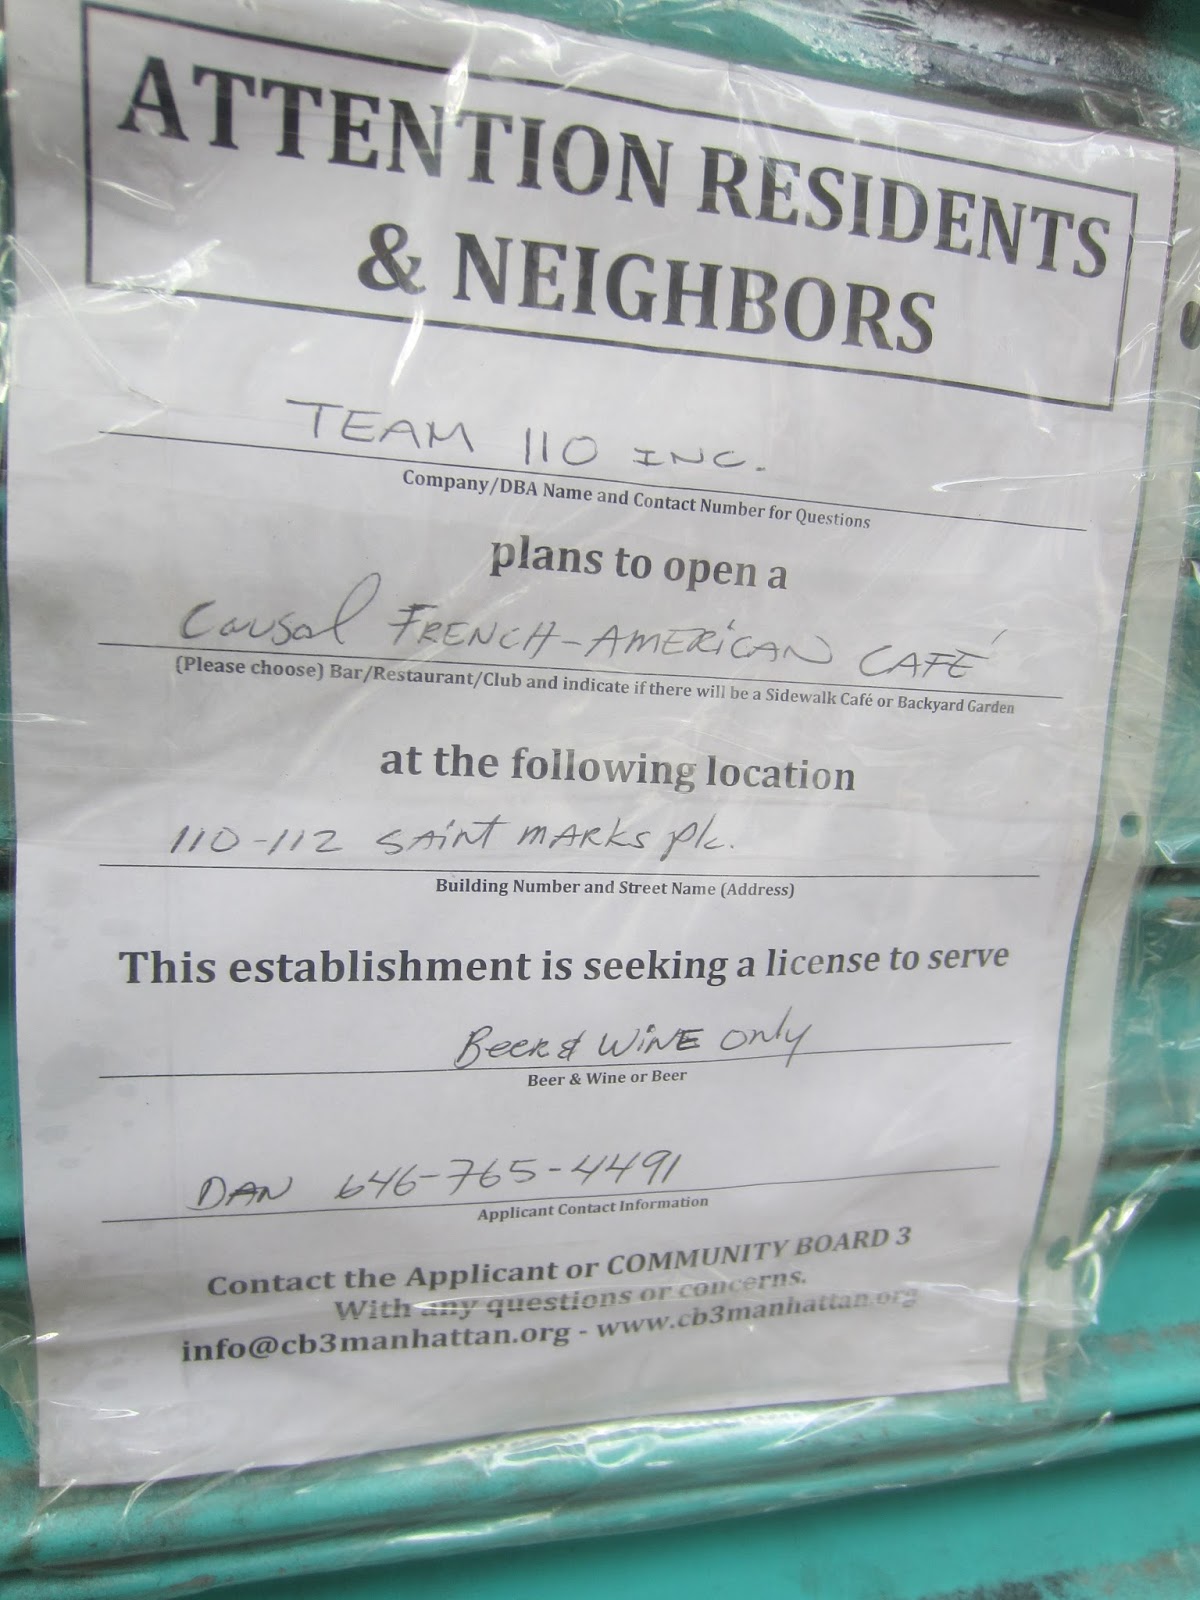 ATTENTION RESIDENTS
& NEIGHBORS
TEAM 110 INC.
Company/DBA Name and Contact Number for Questions
plans to open a
Causal FRENCH-AMERICAN CAFÉ
(Please choose) Bar/Restaurant/Club and indicate if there will be a Sidewalk Café or Backyard Garden
at the following location
110-112 SAINT MARKS PLC.
Building Number and Street Name (Address)
This establishment is seeking a license to serve
Beer & WINE only
Beer & Wine or Beer
DAN 646-765-4491
Applicant Contact Information
Contact the Applicant or COMMUNITY BOARD 3
With any questions or concerns.
info@cb3manhattan.org - www.cb3manhattan.org